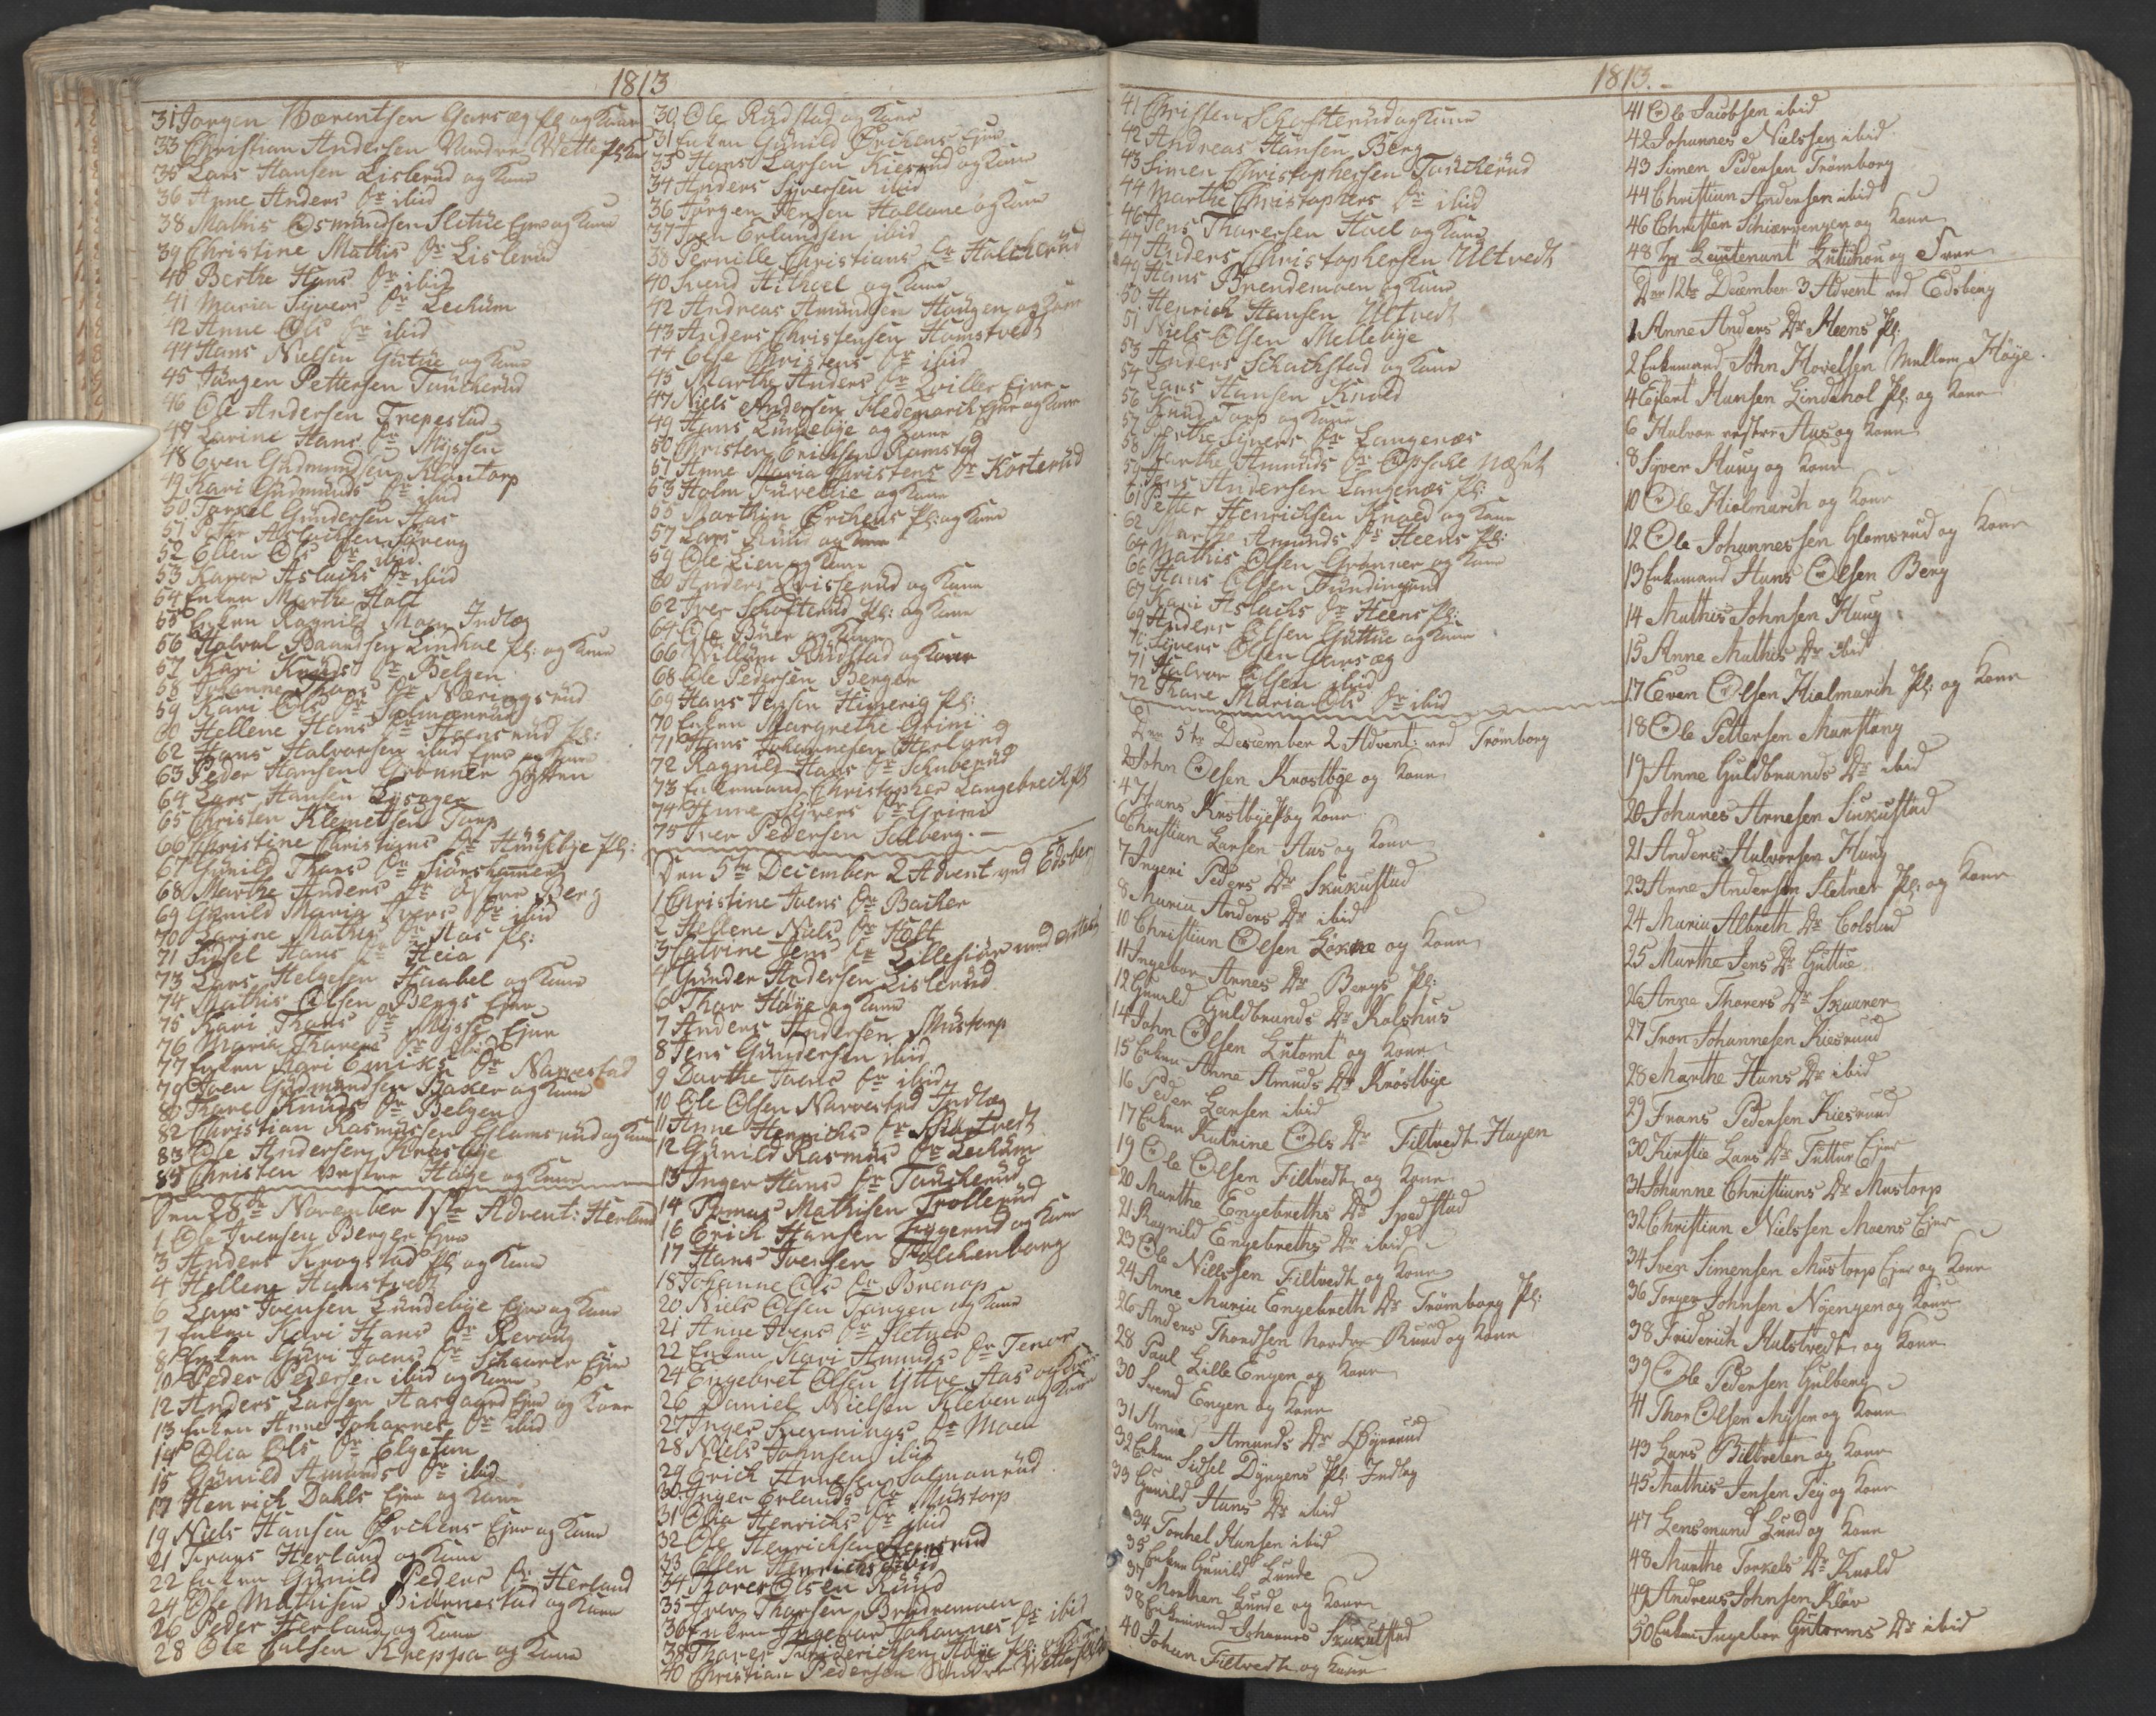 1813
31 Jørgen Børentsen Garsæg pl og Kone
33 Christian Andersen Nordre Wette pl Kone
35 Lars Hansen Listerud og Kone
36 Anne Anders Dr ibid
38 Mathis Osmundsen Slitue Ejer og Kone
39 Christine Mathis Dr Listerud
40 Berthe Hans Dr ibid
41 Maria Syvers Dr Lechum
42 Anne Ols Dr ibid
44 Hans Nielsen Gutue og Kone
45 Jørgen Pettersen Tancherud
46 Ole Andersen Trepestad
47 Karine Hans Dr Myssen
48 Even Gudmundsen Kløntorp
49 Kari Gudmunds Dr ibid
50 Torkel Gundersen Aas
51 Peter Aslachsen
52 Ellen Ols Dr ibid
53 Karen Aslachs Dr ibid
54 Enken Marthe Holt
55 Enken Ragnild Moen Indlæg
56 Halvol Baardsen Lindhol pl: og Kone
57 Kari Knuds Dr Belgen
58 Johanne Thors Dr Næringsrud
59 Kari Ols Dr Solmonrud
60 Hellene Hans Dr Heensrud pl:
62 Hans Halvorsen ibid Ejer og Kone
63 Peder Hansen Grønner
64 Lars Hansen Lysager
65 Christen Klemetsen Torp
66 Christine Christians Dr Huusebye pl:
67 Gunild Thors Dr
68 Marthe Anders Dr østre Berg
69 Gunild Maria Ivers Dr ibid
70 Karine Mathis Dr Aas pl:
71 Sidsel Hans Dr Heia
73 Lars Helgesen Haabel og Kone
74 Mathis Olsen Bergs Ejer
75 Kari Thors Dr Mysse Ejer
76 Maria Thorers Dr ibid
77 Enken Kari Emiks Dr Narvestad
79 Iven Gudmundsen Baker og Kone
80 Thore Knuds Dr Belgen
82 Christian Rasmussen Glamsrud og Kone
83 Ole Andersen Krosbye
85 Christen vestre Høye og Kone
Den 28de November 1ste Advent: Herland
1 Ole Iversen Berger Ejer
3 Anders Krogstad pl og Kone
4 Hellene Hamstvedt
6 Lars Iversen Lundebye Ejer og Kone
7 Enken Kari Hans Dr Revoug
8 Enken Guri Ivers Dr Schaarer Ejer
10 Peder Pedersen ibid og Kone
12 Anders Larsen Aasgaard Ejer og Kone
13 Enken Anne Johannes Dr ibid
14 Olia Ols Dr Elgetun
15 Gunild Amunds Dr ibid
17 Henrich Dahls Ejer og Kone
19 Niels Hansen Ørchens Ejer og Kone
21 Frans Herland og Kone
22 Enken Gunild Peders Dr Herland
24 Ole Mathisen Biørnestad og Kone
26 Peder Herland og Kone
28 Ole Eulsen Kneppa og Kone
30 Ole Rudstad og Kone
31 Enken Gunild Ørchens Ejer
33 Hans Larsen Kiesrud og Kone
34 Anders Syversen ibid
36 Jørgen Jensen Hallone og Kone
37 Iven Erlandsen ibid
38 Pernille Christians Dr Hallcherud
40 Svend Hithoel og Kone
42 Andreas Amundsen Haugen og Kone
43 Anders Christensen Hamstvedt
44 Else Christens Dr ibid
45 Marthe Anders Dr Qviller Ejer
47 Niels Andersen Hedemarck Ejer og Kone
49 Hans Lundebye og Kone
50 Christen Erichsen Ramstad
51 Anne Maria Christens Dr Kosterud
53 Holm Furellie og Kone
55 Marthin Ørchens pl: og Kone
57 Lars Ruud og Kone
59 Ole Lien og Kone
60 Anders Qvisterud og Kone
62 Iver Schofterud pl: og Kone
64 Ole Buer og Kone
66 Willum Rudstad og Kone
68 Ole Pedersen Berger
69 Hans Jensen Himerig pl:
70 Enken Margrethe Grini
71 Hans Johannesen Herland
72 Ragnild Hans Dr Schuberud
73 Enkemand Christopher Langebrech pl
74 Anne Syvers Dr Grini
75 Iver Pedersen Solberg.-
Den 5te December 2 Advent ved Edsberg
1 Christine Ivers Dr Backer
2 Hellene Niels Dr Holt
3 Catrine Jens Dr Lillesiør
4 Gunder Andersen Listerud
6 Thor Høye og Kone
7 Anders Andersen Mustorp
8 Jens Gundersen ibid
9 Dorthe Ivers Dr ibid
10 Ole Olsen Narvestad Indlæg
11 Anne Henrichs Dr Schiøtvedt
12 Gunild Rasmus Dr Lechum
13 Inger Hans Dr Tancherud
14 Thomas Mathisen Trollerud
16 Erich Hansen Eggerud og Kone
17 Hans Iversen Folchenborg
18 Johanne Ols Dr Brenop
20 Niels Olsen Tangen og Kone
21 Anne Ivers Dr Sletner
22 Enken Kari Amunds Dr Tenor
24 Engebret Olsen yttre Aas og Kone
26 Daniel Nielsen Kleven og Kone
27 Inger Svennings Dr Moen
28 Niels Johnsen ibid
29 Erich Arnesen Solmonrud
30 Inger Erlands Dr Mustorp
31 Olia Henrichs Dr ibid
32 Ole Henrichsen Heensrud
33 Ellen Henrichs Dr ibid
34 Thorer Olsen Ruud
35 Iver Thorsen Brendemoen
36 Enken Ingebor Johannes Dr ibid
38 Thorer Friderichsen Høje pl: og Kone
40 Christian Pedersen Søndre Wette
1813.-
41 Christen Schofterud og Kone
42 Andreas Hansen Berg
43 Simen Christophersen Tancherud
44 Marthe Christophers Dr ibid
46 Jens Thoresen Hoel og Kone
47 Anders Christophersen Ultvedt
49 Hans Brendemoen og Kone
50 Henrich Hansen Ultvedt
51 Niels Olsen Mellebye
53 Anders Schackstad og Kone
54 Lars Hansen Knold
56 Knud Torp og Kone
57 Berthe Syvers Dr Langenæs
58 Marthe Amunds Dr Opsahl Næset
59 Jens Andersen Langenæs pl:
61 Petter Henrichsen Knold og Kone
62 Marthe Amunds Dr Heens pl:
64 Mathis Olsen Grønner og Kone
66 Hans Olsen Fundingrud
67 Kari Aslachs Dr Heens pl:
69 Anders Olsen Guttue og Kone
70 Syvers Olsen Garsæg
71 Halvor Olsen ibid
72 Thore Maria Ols Dr ibid
Den 5te December 2 Advent: ved Trømborg
2 John Olsen Krosbye og Kone
4 Hans Krosbye pl og Kone
6 Christian Larsen Aas og Kone
7 Ingeri Peders Dr Skakustad
8 Maria Anders Dr ibid
10 Christian Olsen Løkne og Kone
11 Ingebor Arnes Dr Bergs Pl:
12 Gunild Guldbrands Dr Kolshus
14 John Olsen Gutomt og Kone
15 Enken Anne Amuds Dr Krøsbye
16 Peder Larsen ibid
17 Enken Katrine Ols Dr Filtvedt Hagen
19 Ole Olsen Filtvedt og Kone
20 Marthe Engebreths Dr Spedstad
21 Ragnild Engebreths Dr ibid
23 Ole Nielsen Filtvedt og Kone
24 Anne Maria Engebreth Dr Trømborg Pl:
26 Anders Thordsen Nordre Ruud og Kone
28 Paul Lille Engen og Kone
30 Svend Engen og Kone
31 Amund Amunds Dr
32 Enken Sidsel Dyngens Pl: Indlæg
33 Gunild Hans Dr ibid
34 Torkel Hansen ibid
35 Enken Gunild Lunde
37 Morthen Lunde og Kone
38 Enkemand Johannes Skakustad
40 Johan Filtvedt og Kone
1813.-
41 Ole Jacobsen ibid
42 Johannes Nielssen ibid
43 Simen Pedersen Trømborg
44 Christian Andersen ibid
46 Christen Schiærvengen og Kone
48 Hr Leutenant Grüschou og Frue
Den 12te December 3 Advent ved Edsberg
1 Anne Anders Dr Heens pl:
2 Enkemand John Hovelsen Mellom Høye.
4 Eylert Hansen Lindehol Pl: og Kone
6 Halvor vestre Aas og Kone
8 Syver Haug og Kone
10 Ole Hielmarck og Kone
12 Ole Johannessen Glomsrud og Kone
13 Enkemand Hans Olsen Berg
14 Mathis Johnsen Haug
15 Anne Mathis Dr ibid
17 Even Olsen Hialmarck Pl: og Kone
18 Ole Pettersen Monstang
19 Anne Guldbrands Dr ibid
20 Johanes Arnesen Sinkustad
21 Anders Halvorsen Haug
23 Arne Andersen Sletner Pl: og Kone
24 Maria Albreth Dr Colstad
25 Marthe Jens Dr Guttue
26 Anne Thorers Dr Skaarer
27 Tron Johannesen Kiesrud
28 Marthe Hans Dr ibid
29 Frans Pedersen Kiesrud
30 Kirstie Lars Dr Tuttur Ejer
31 Johanne Christians Dr Mustorp
32 Christian Nielssen Moens Ejer
34 Sven Simensen Mustorp Ejer og Kone
36 Torger Johnsen Nøengen og Kone
38 Friderich Hulstvedt og Kone
39 Ole Pedersen Gulberg
41 Thor Olsen Mysen og Kone
43 Lars Biltveten og Kone
45 Mathis Jensen Tej og Kone
47 Lensmand Lund og Kone
48 Marthe Torkels Dr Knold
49 Andreas Johnsen Kløv
50 Enken Ingebor Gutorms Dr ibid